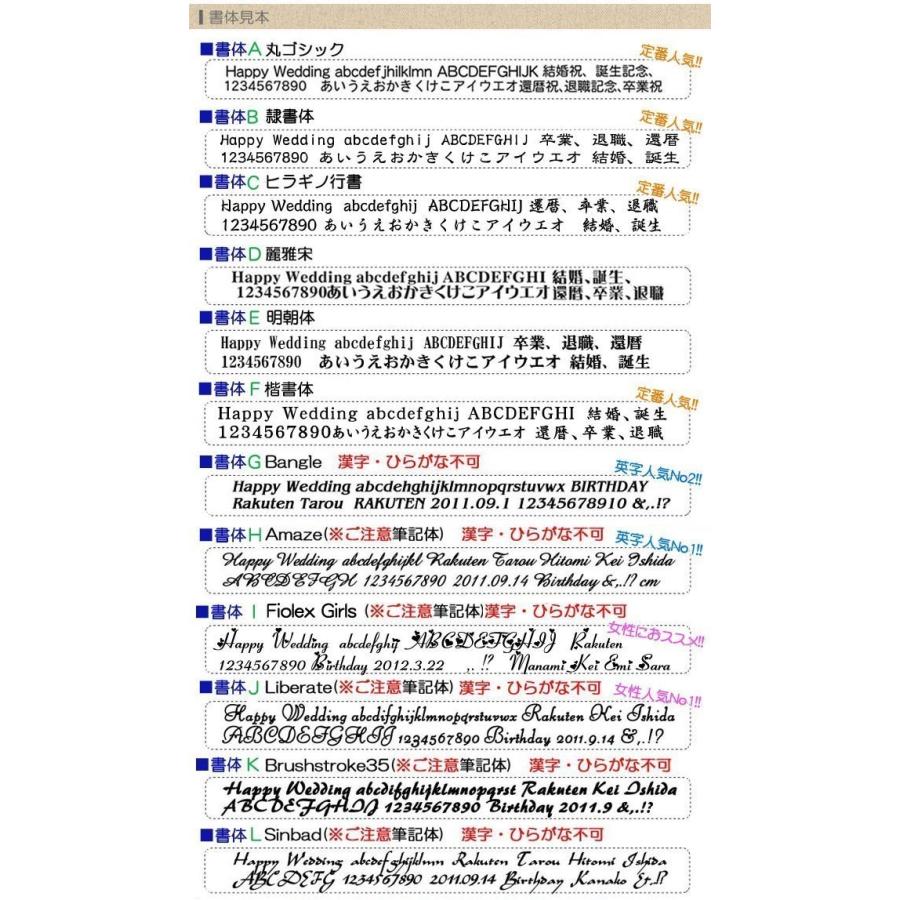 書体見本
■書体A 丸ゴシック
定番人気!!
Happy Wedding abcdefjhilklmn ABCDEFGHIJK 結婚祝、誕生記念、
1234567890 あいうえおかきくけこアイウエオ還暦祝,退職記念、卒業祝
■書体B 隷書体
定番人気!!
Happy Wedding abcdefghij ABCDEFGHIJ 卒業、退職、還暦
1234567890 あいうえおかきくけこアイウエオ 結婚、誕生
■書体C ヒラギノ行書
定番人気!!
Happy Wedding abcdefghij ABCDEFGHIJ 還暦、卒業、退職
1234567890 あいうえおかきくけこアイウエオ 結婚、誕生
■書体D 麗雅宋
Happy Wedding abcdefghij ABCDEFGHI 結婚、誕生、
1234567890あいうえおかきくけこアイウエオ還暦、卒業、退職
■書体E 明朝体
Happy Wedding abcdefghij ABCDEFGHIJ 卒業、退職、還暦
1234567890 あいうえおかきくけこアイウエオ 結婚、誕生
■書体F 楷書体
定番人気!!
Happy Wedding abcdefghij ABCDEFGHI 結婚、誕生
1234567890あいうえおかきくけこアイウエオ 還暦、卒業、退職
■書体G Bangle 漢字・ひらがな不可
英字人気No2!!
Happy Wedding abcdehghijklmnopqrstuvwx BIRTHDAY
Rakuten Tarou RAKUTEN 2011.09.1 12345678910 &,.!?
■書体H Amaze(※ご注意筆記体) 漢字・ひらがな不可
英字人気No1!!
Happy Wedding abcdefghijkl Rakuten Tarou Hitomi Kei Ishida
ABCDEFGH 1234567890 2011.09.14 Birthday &,.!? cm
■書体I Fiolex Girls (※ご注意筆記体)漢字・ひらがな不可
女性におススメ!!
Happy Wedding abcdefghij ABCDEFGHIJ Rakuten
1234567890 Birthday 2012.3.22 ,. !? Manami Kei Emi Sara
■書体J Liberate(※ご注意筆記体) 漢字・ひらがな不可
女性人気No1!!
Happy Wedding abcdifghijklmnopqrstuvwx Rakuten Kei Ishida
ABCDEFGHIJ 1234567890 Birthday 2011.9.14 &,.!?
■書体K Brushstroke35(※ご注意筆記体) 漢字・ひらがな不可
Happy Wedding abcdifghijklmnopqrst Rakuten Kei Ishida
ABCDEFGHIJ 1234567890 Birthday 2011.9 &,.!?
■書体L Sinbad(※ご注意筆記体) 漢字・ひらがな不可
Happy Wedding abcdefghijklmn Rakuten Tarou Hitomi Ishida
ABCDEFG 1234567890 2011.09.14 Birthday Kanako &.!?